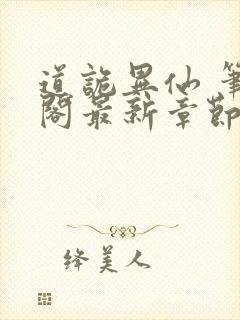 道詭異仙 筆
閣最新章節
绛美人